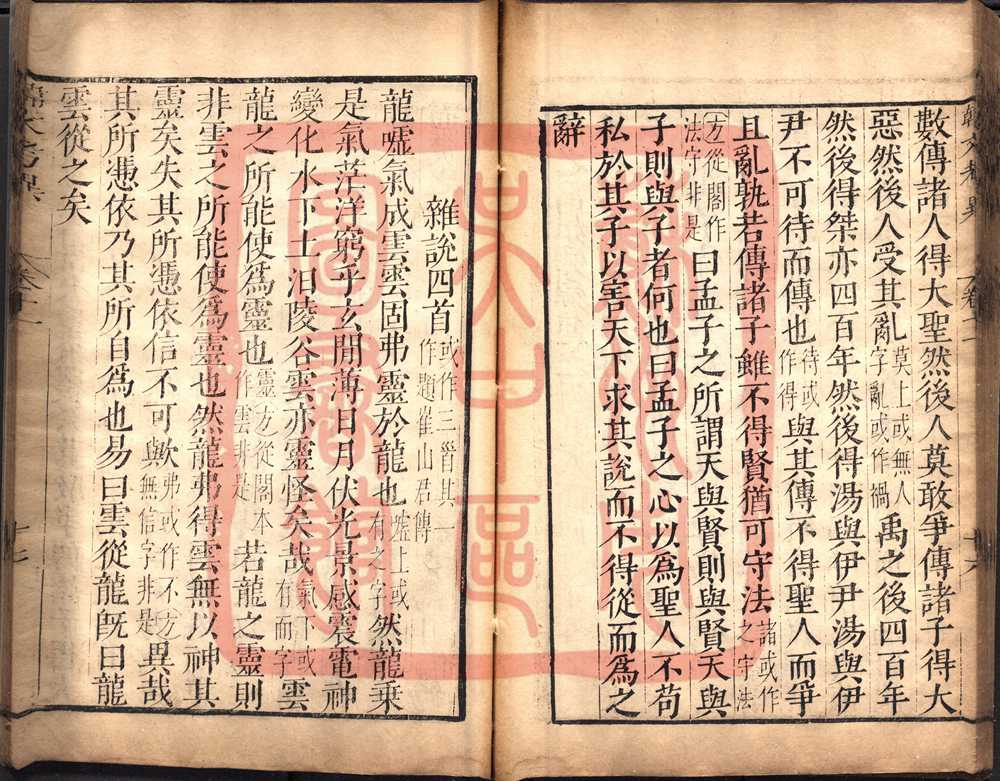 數傳諸人得大聖然後人莫敢爭傳諸子得大
惡然後人受其亂莫上或無人字亂或作禍禹之後四百年
然後得桀亦四百年然後得湯與伊尹湯與伊
尹不可待而傳也待或作得與其傳不得聖人而爭
且亂孰若傳諸子雖不得賢猶可守法諸或作之守法
方從閣作法字非是曰孟子之所謂天與賢則與賢天與
子則與子者何也曰孟子之心以爲聖人不苟
私於其子以害天下求其說而不得從而爲之
辭
韓文考異
卷十一
十六
雜說四首或作三首其一作題崔山君傳
龍噓氣成雲雲固弗靈於龍也噓上或有之字然龍乘
是氣茫洋窮乎玄閒薄日月伏光景感震電神
變化水下土汨陵谷雲亦靈怪矣哉氣下或有而字雲
龍之所能使爲靈也靈方從閣本作雲非是若龍之靈則
非雲之所能使爲靈也然龍弗得雲無以神其
靈矣失其所憑依信不可歟弗或作不方無信字與非是異哉
其所憑依乃其所自爲也易曰雲從龍旣曰龍
雲從之矣
韓文考異
卷十一
十七